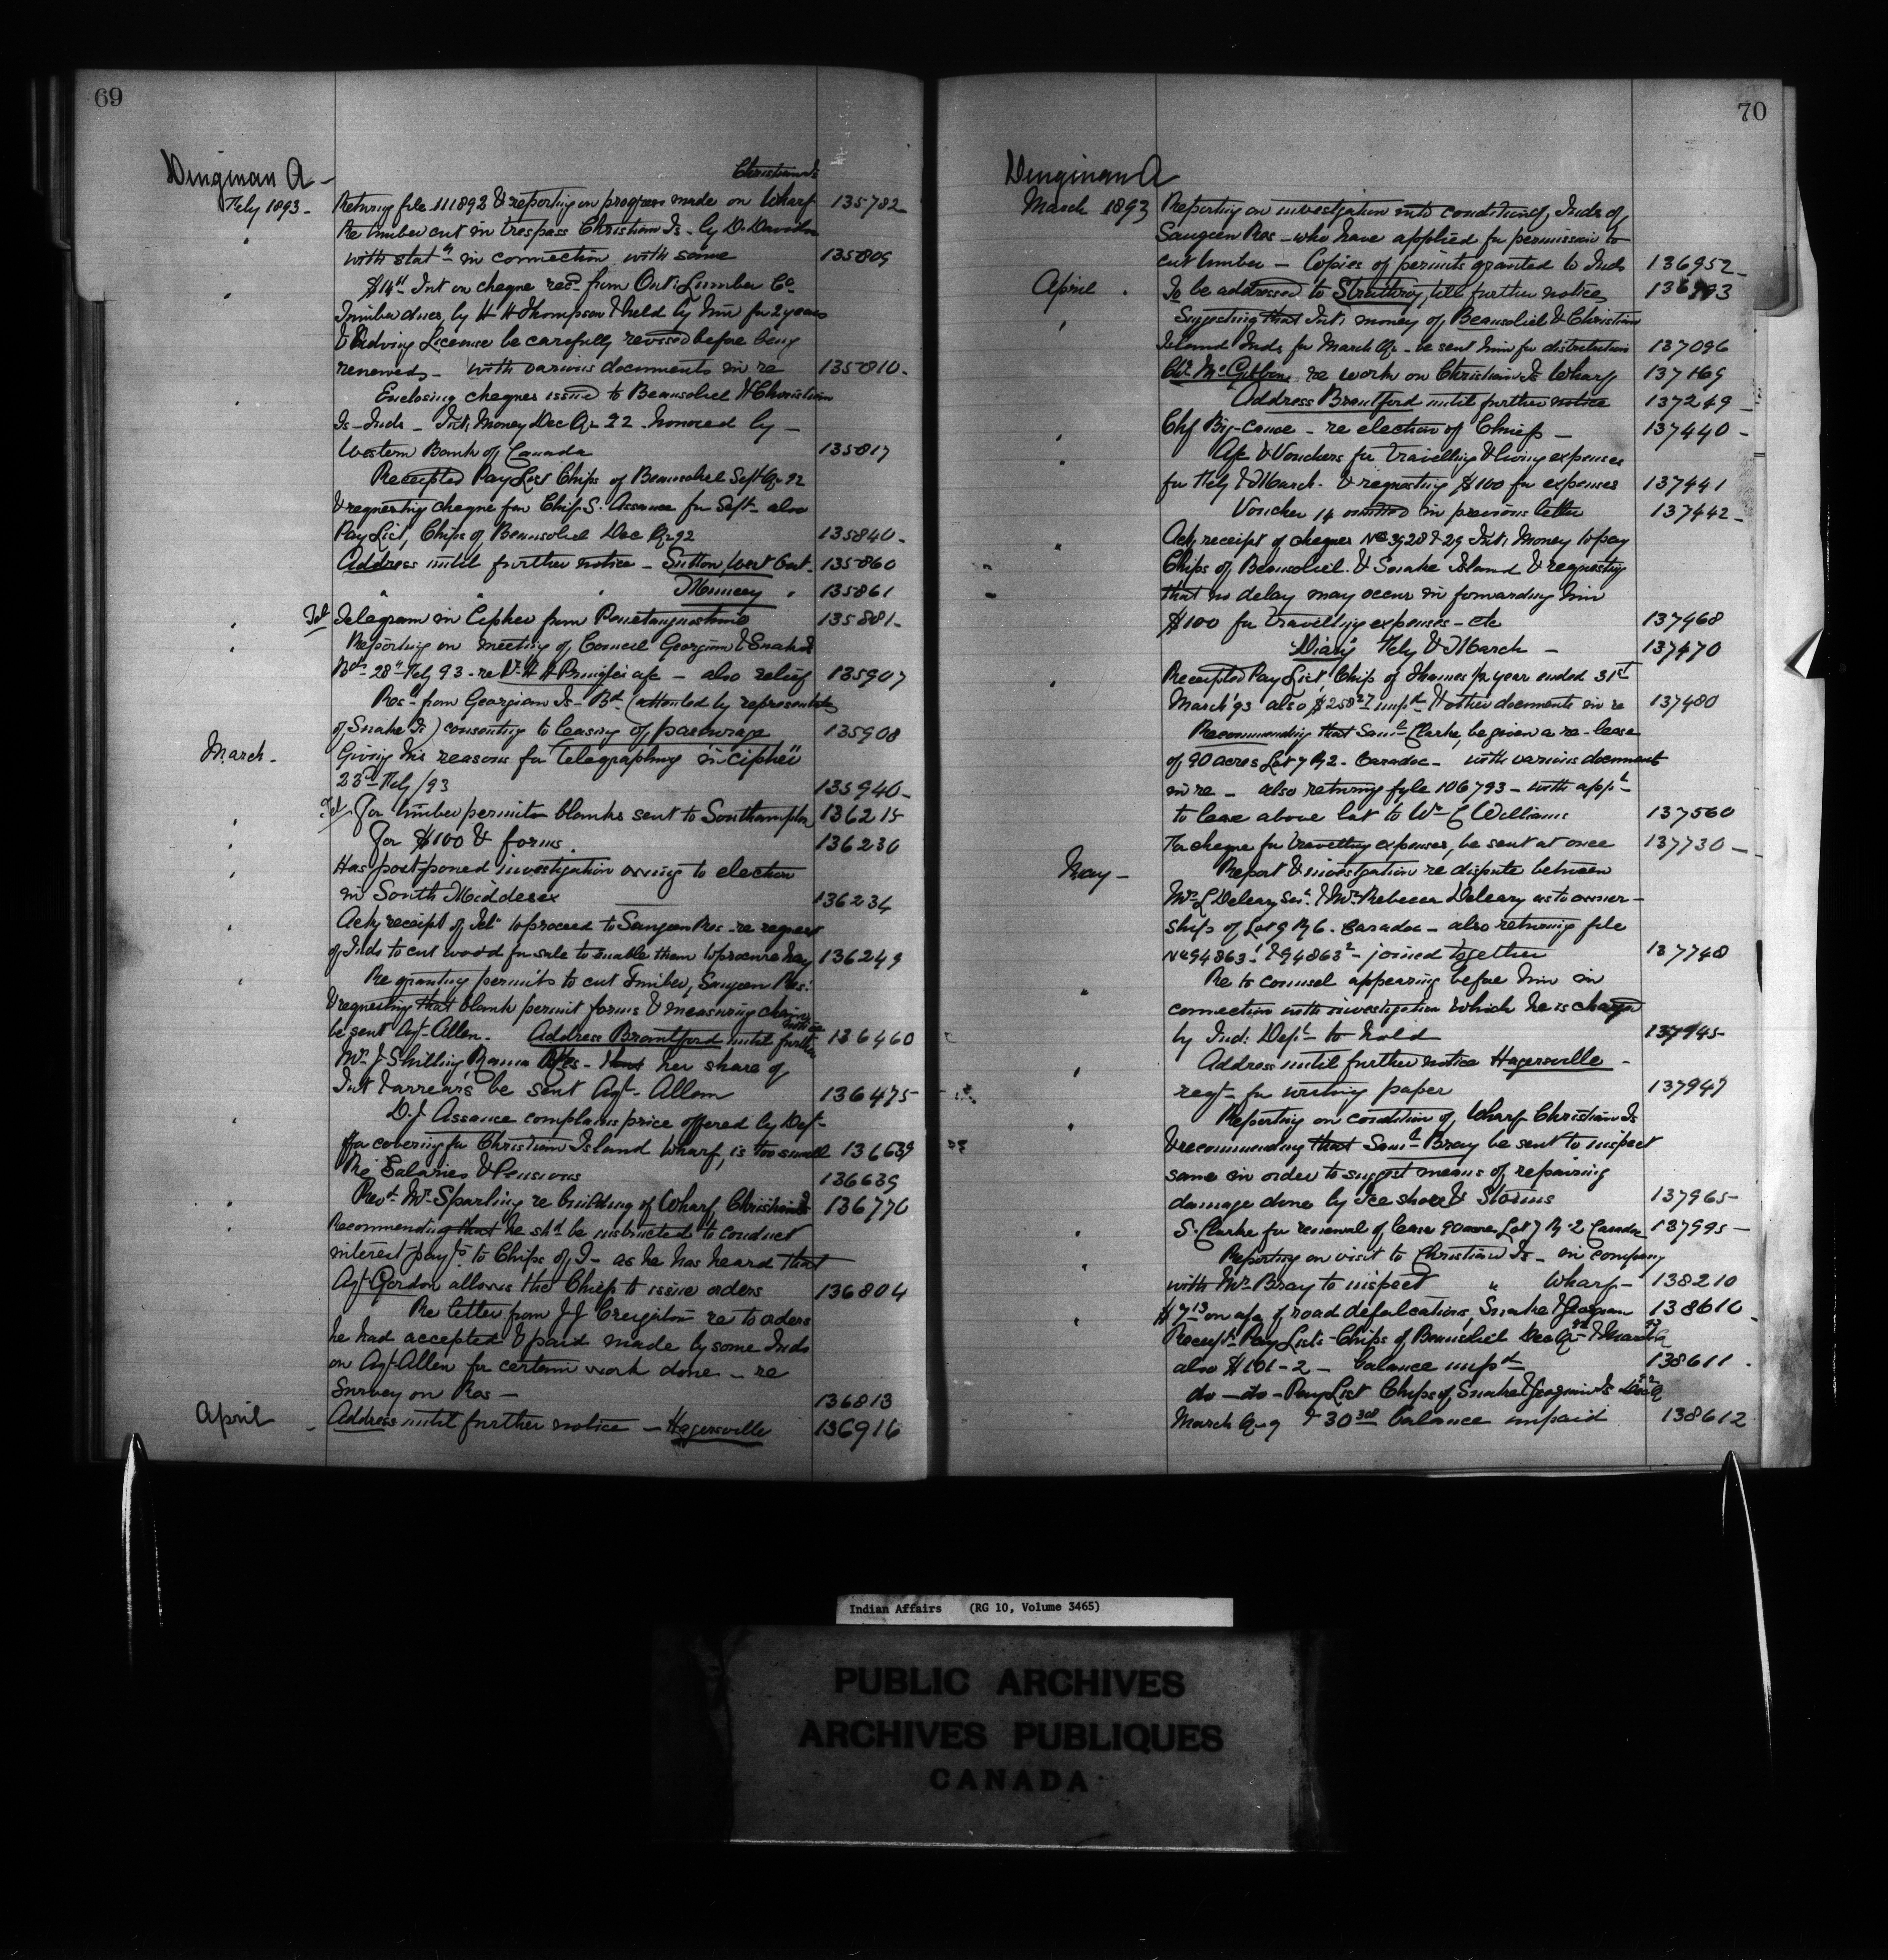 69
Dingman A -
Christian Is
Feby 1893 - Returng file 111892 & reporting on progress made on Wharf 135782
" Re timber cut in trespass Christian Is - by D. Davidson
with statn in connection with same 135809
" $14 Int on cheque recd from Ont. Lumber Co
Timber dues, by H H Thompson & held by him for 2 years
& advising License be carefully revised before being
renewed - with various documents in re 135810 -
" Enclosing cheques issued to Beausoliel & Christian
Is - Inds - Int. Money Dec Qr 92 honored by -
Western Bank of Canada 135817
Receipted Pay List Chips of Beausoliel Sept Qr 92
& requesting cheque for Chip S. Assance for Sept - also
Pay List, Chips of Beausoliel Dec Qr 92 135840 -
Address until further notice - Sutton, West Ont - 135860
" " " Muncey " 135861
" Tel Telegram in Cipher from Penetanguishene 135881 -
" Reporting on meeting of Council Georgina & Snake Is
Bds 28" Feby 93 - re Dr H H Pringle's a/c - also relief 135907
Res - from Georgian Is - Bd (attended by representatives
of Snake Is) consenting to leasing of pasturage 135908
March - Giving his reasons for telegraphing "in cipher"
23rd Feby /93 135940 -
" Tel For timber permits blanks sent to Southampton 136215
" For $100 & forms. 136230
" Has postponed investigation owing to election
in South Middlesex 136234
" Ackg receipt of Tel. to proceed to Saugeen Res - re request
of Inds to cut wood for sale to enable them to procure hay 136249
" Re granting permits to cut Timber, Saugeen Res.
& requesting that blank permit forms & measuring chain
be sent Agt - Allen. Address Brantford until further notice 136460
Mrs J Shilling, Rama Res - that her share of
Int & arrears be sent Agt - Allen 136475
" D. J Assance complains price offered by Dept
for covering for Christian Island Wharf, is too small 136639
Re Salaries & Pensions 136639
" Revd Mr Sparling re building of Wharf Christian Is 136770
" Recommending that he shd be instructed to conduct
interest payts to Chips of I - as he has heard that
Agt Gordon allows the Chief to issue orders 136804
Re letter from J J Creighton re to orders
he had accepted & paid made by some Inds
on Agt - Allen for certain work done - re
Survey on Res - 136813
April - Address until further notice - Hagersville 136916
70
Dingman A
March 1893 Reporting on investigation into condition of, Inds of
Saugeen Res - who have applied for permission to
cut timber - Copies of permits granted to Inds 136952 -
April . To be addressed to Strathroy, till further notice 136993
" Suggesting that Int. money of Beausoliel & Christian
Island Inds for March Qr - be sent him for distribution 137096
Chf. McGibbon re work on Christian Is Wharf 137169
Address Brantford until further notice 137249 -
" Chf Big-Canoe - re election of Chief - 137440 -
" A/c & Vouchers for travelling & living expenses
for Feby & March - & requesting $100 for expenses 137441
Voucher 14 omitted in previous letter 137442 -
" Ack. receipt of cheques No 3928 & 29 Int. Money to pay
Chips of Beausoliel & Snake Island & requesting
that no delay may occur in forwarding him
$100 for travelling expenses - etc 137468
"Diary" Feby & March - 137470
" Receipted Pay List, Chips of Thames for year ended 31st
March '93 also $258 27 unpd & other documents in re 137480
Recommending that Saml Clarke, be given a re-lease
of 90 acres Lot 7 R 2 - Caradoc - with various documents
in re - also returning fyle 106793 - with appl
to lease above lot to Wm C Williams 137560
For cheque for travelling expenses, be sent at once 137730 -
May - Report & investigation re dispute between
Mrs L Deleary Senr & Mrs Rebecca Deleary as to owner-
ship of Lot 9 R 6 - Caradoc - also returning file
No 94863 - & 94863 2 - joined together 137748
" Re to counsel appearing before him in
connection with investigation which he is charged
by Ind: Dept to hold 137945
" Address until further notice Hagersville -
reqt - for writing paper 137947
" Reporting on condition of, Wharf Christian Is
& recommending that Saml Bray be sent to inspect
same in order to suggest means of repairing
damage done by Ice shove & Storms 137965
" S. Clarke for renewal of lease 90 acres Lot 7 R. 2 Caradoc 137995 -
" Reporting on visit to Christian Is - in company
with Mr Bray to inspect " Wharf - 138210
" $7 13 on a/c of road defalcations, Snake & Georgian 138610
Receipt. Pay Lists - Chips of Beausoliel Dec Qr 92 & March 93 Qr
also $101-2 - balance unpd 138611 .
do - do - Pay List Chips of Snake & Georgina Is Dec Qr 92
March Qr 9 & 30 38 balance unpaid 138612
Indian Affairs (RG 10, Volume 3465)
PUBLIC ARCHIVES
ARCHIVES PUBLIQUES
CANADA